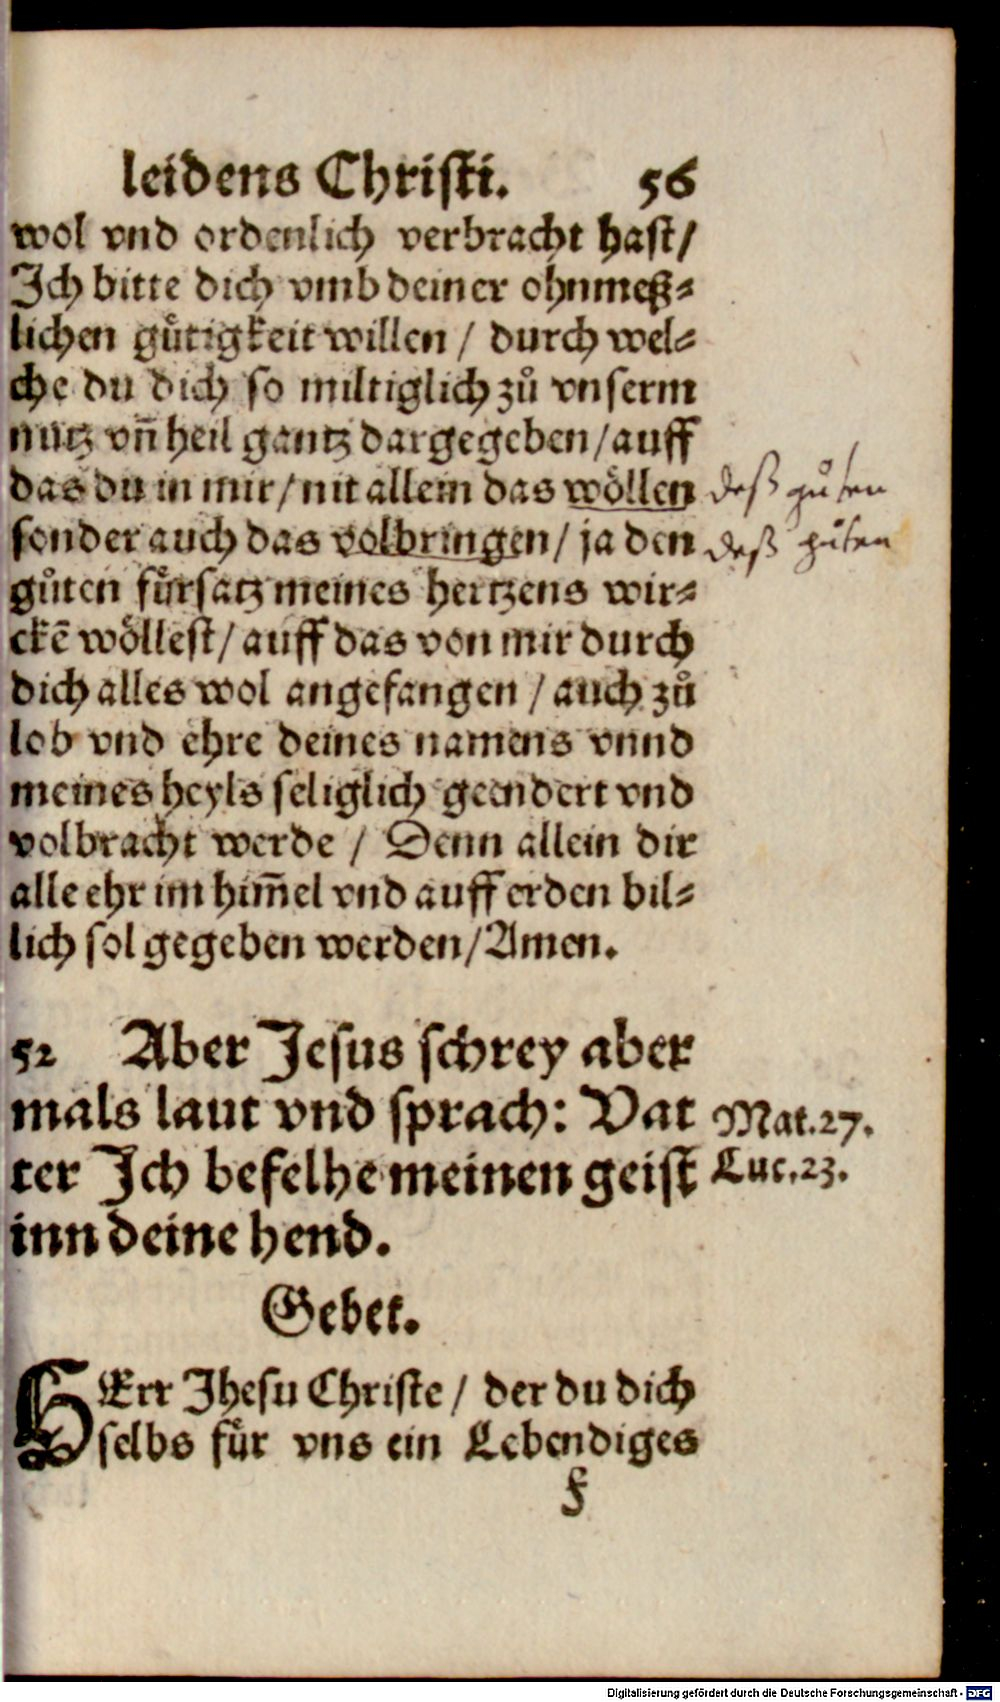 leidens Christi. 56
wol vnd ordenlich verbracht hast/
Ich bitte dich vmb deiner ohnmeß⸗
lichen guͤtigkeit willen / durch wel⸗
che du dich so miltiglich zuͦ vnserm
nutz vñ heil gantz dargegeben/auff
das du in mir/nit allein das woͤllen
deß guͦten
sonder auch das volbringen/ ja den
deß guͦten
guͦten fuͤrsatz meines hertzens wir⸗
ckē woͤllest/ auff das von mir durch
dich alles wol angefangen / auch zuͦ
lob vnd ehre deines namens vnnd
meines heyls seliglich geendert vnd
volbracht werde / Denn allein dir
alle ehr im him̄el vnd auff erden bil⸗
lich sol gegeben werden/Amen.
52 Aber Jesus schrey aber
mals laut vnd sprach: Vat
Mat.27.
ter Ich befelhe meinen geist
Luc.23.
inn deine hend.
Gebet.
HErr Jhesu Christe / der du dich
selbs fuͤr vns ein Lebendiges
f
Digitalisierung gefördert durch die Deutsche Forschungsgemeinschaft - DFG